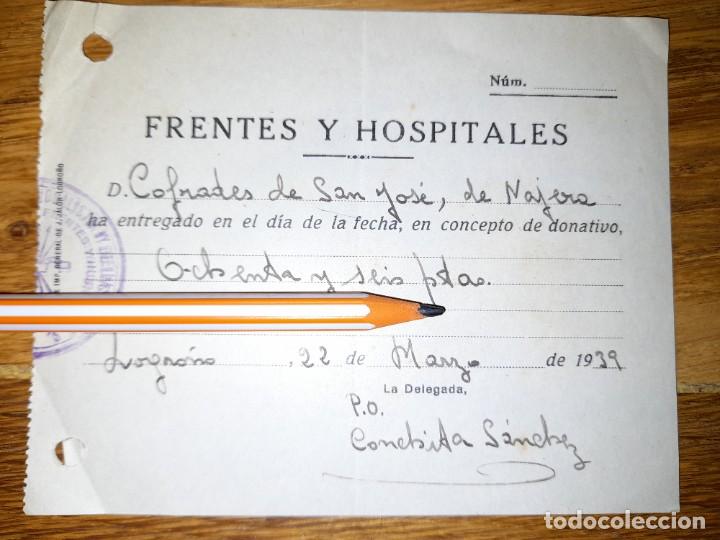 Núm.
FRENTES Y HOSPITALES
D. Cofrades de San José, de Najera
ha entregado en el día de la fecha, en concepto de donativo,
Ochenta y seis ptas.
Logroño, 22 de Marzo de 1939
La Delegada,
P.O.
Conchita Sánchez
IMP. GENERAL DE
todocoleccion
todocoleccion.net